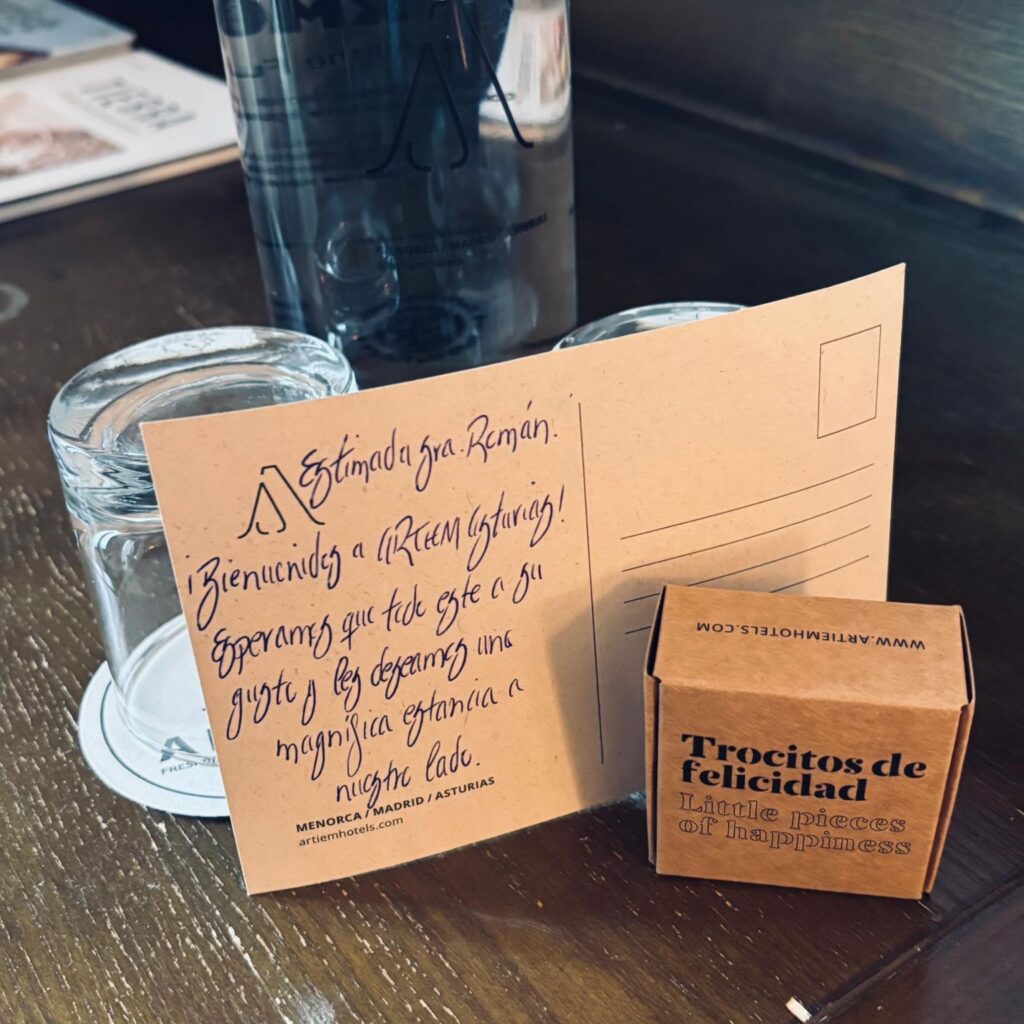 TIERRA
MENORCA / MADRID / ASTURIAS
Estimada Sra. Román.
¡Bienvenidos a ARTIEM Asturias!
Esperamos que todo este a su
gusto y les deseamos una
magnífica estancia a
nuestro lado.
MENORCA / MADRID / ASTURIAS
artiemhotels.com
WWW.ARTIEMHOTELS.COM
Trocitos de
felicidad
Little pieces
of happiness